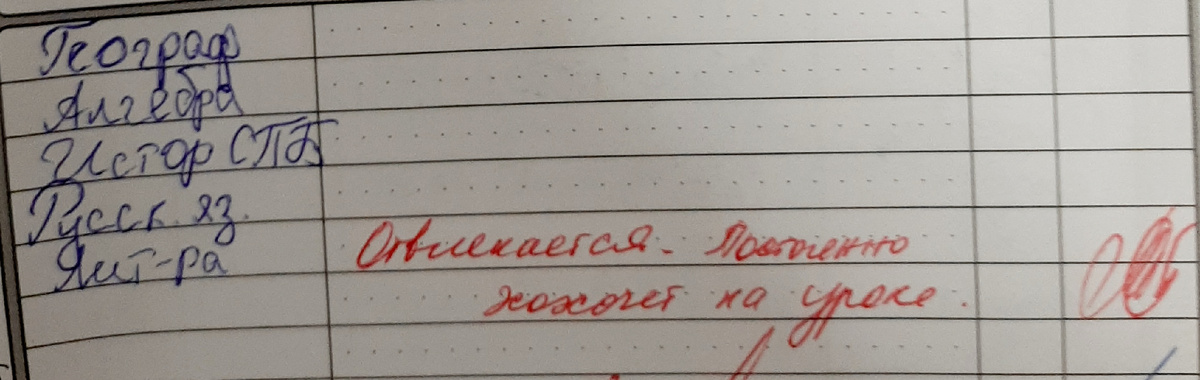 Географ
Алгебра
Истор СПб
Русск. яз.
Лит-ра
Отвлекается. Постоянно
хохочет на уроке.